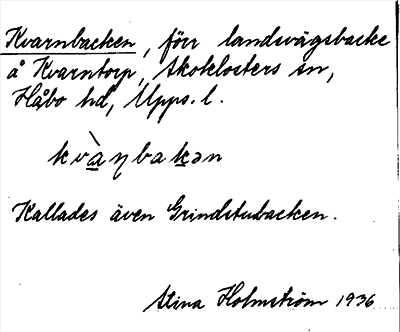 Kvarnbacken, förr landsvägsbacke
å Kvarntorp, Skoklosters sn,
Håbo hd, Upps. l.
kvàηbakən
Kallades även Grindstubacken.
Stina Holmström 1936